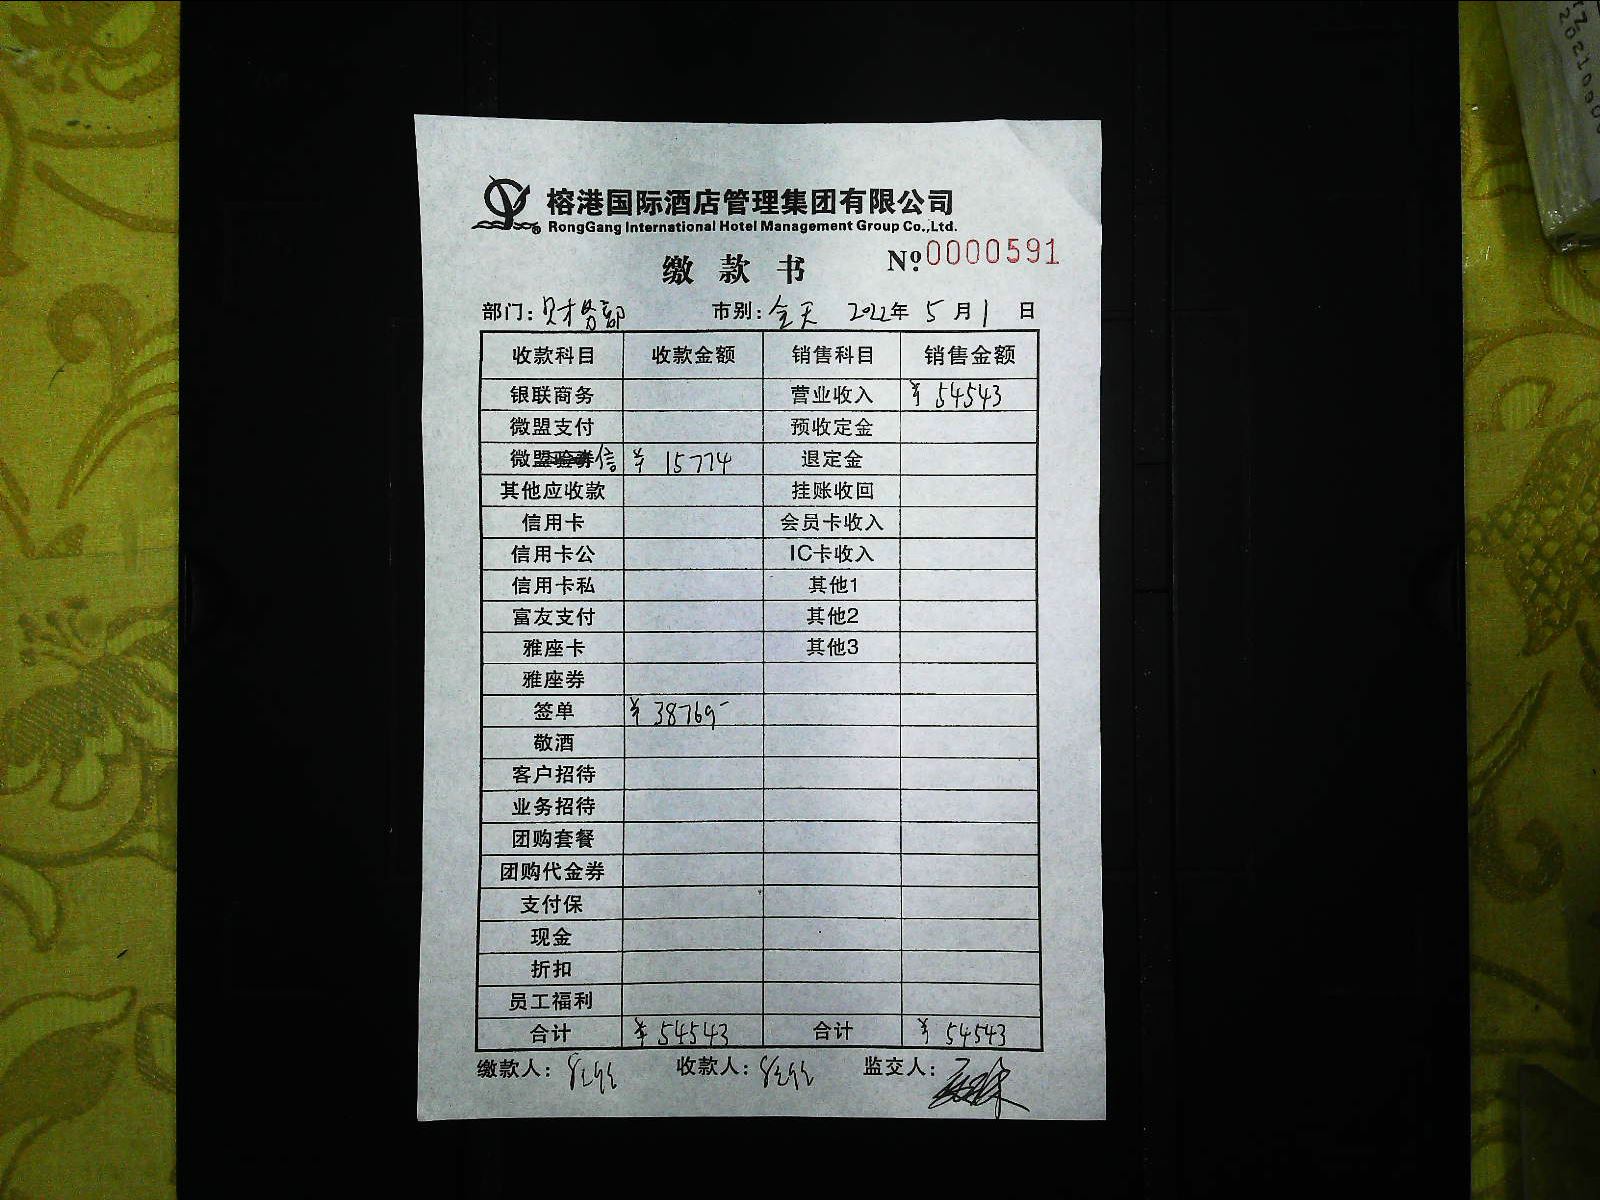 榕港国际酒店管理集团有限公司
RongGang International Hotel Management Group Co.,Ltd.
缴款书 №0000591
部门：财务部 市别：全天 2022年5月1日
收款科目 收款金额 销售科目 销售金额
银联商务 营业收入 ¥54543
微盟支付 预收定金
微信 ¥15774 退定金
其他应收款 挂账收回
信用卡 会员卡收入
信用卡公 IC卡收入
信用卡私 其他1
富友支付 其他2
雅座卡 其他3
雅座券
签单 ¥38769-
敬酒
客户招待
业务招待
团购套餐
团购代金券
支付保
现金
折扣
员工福利
合计 ¥54543 合计 ¥54543
缴款人： 收款人： 监交人：